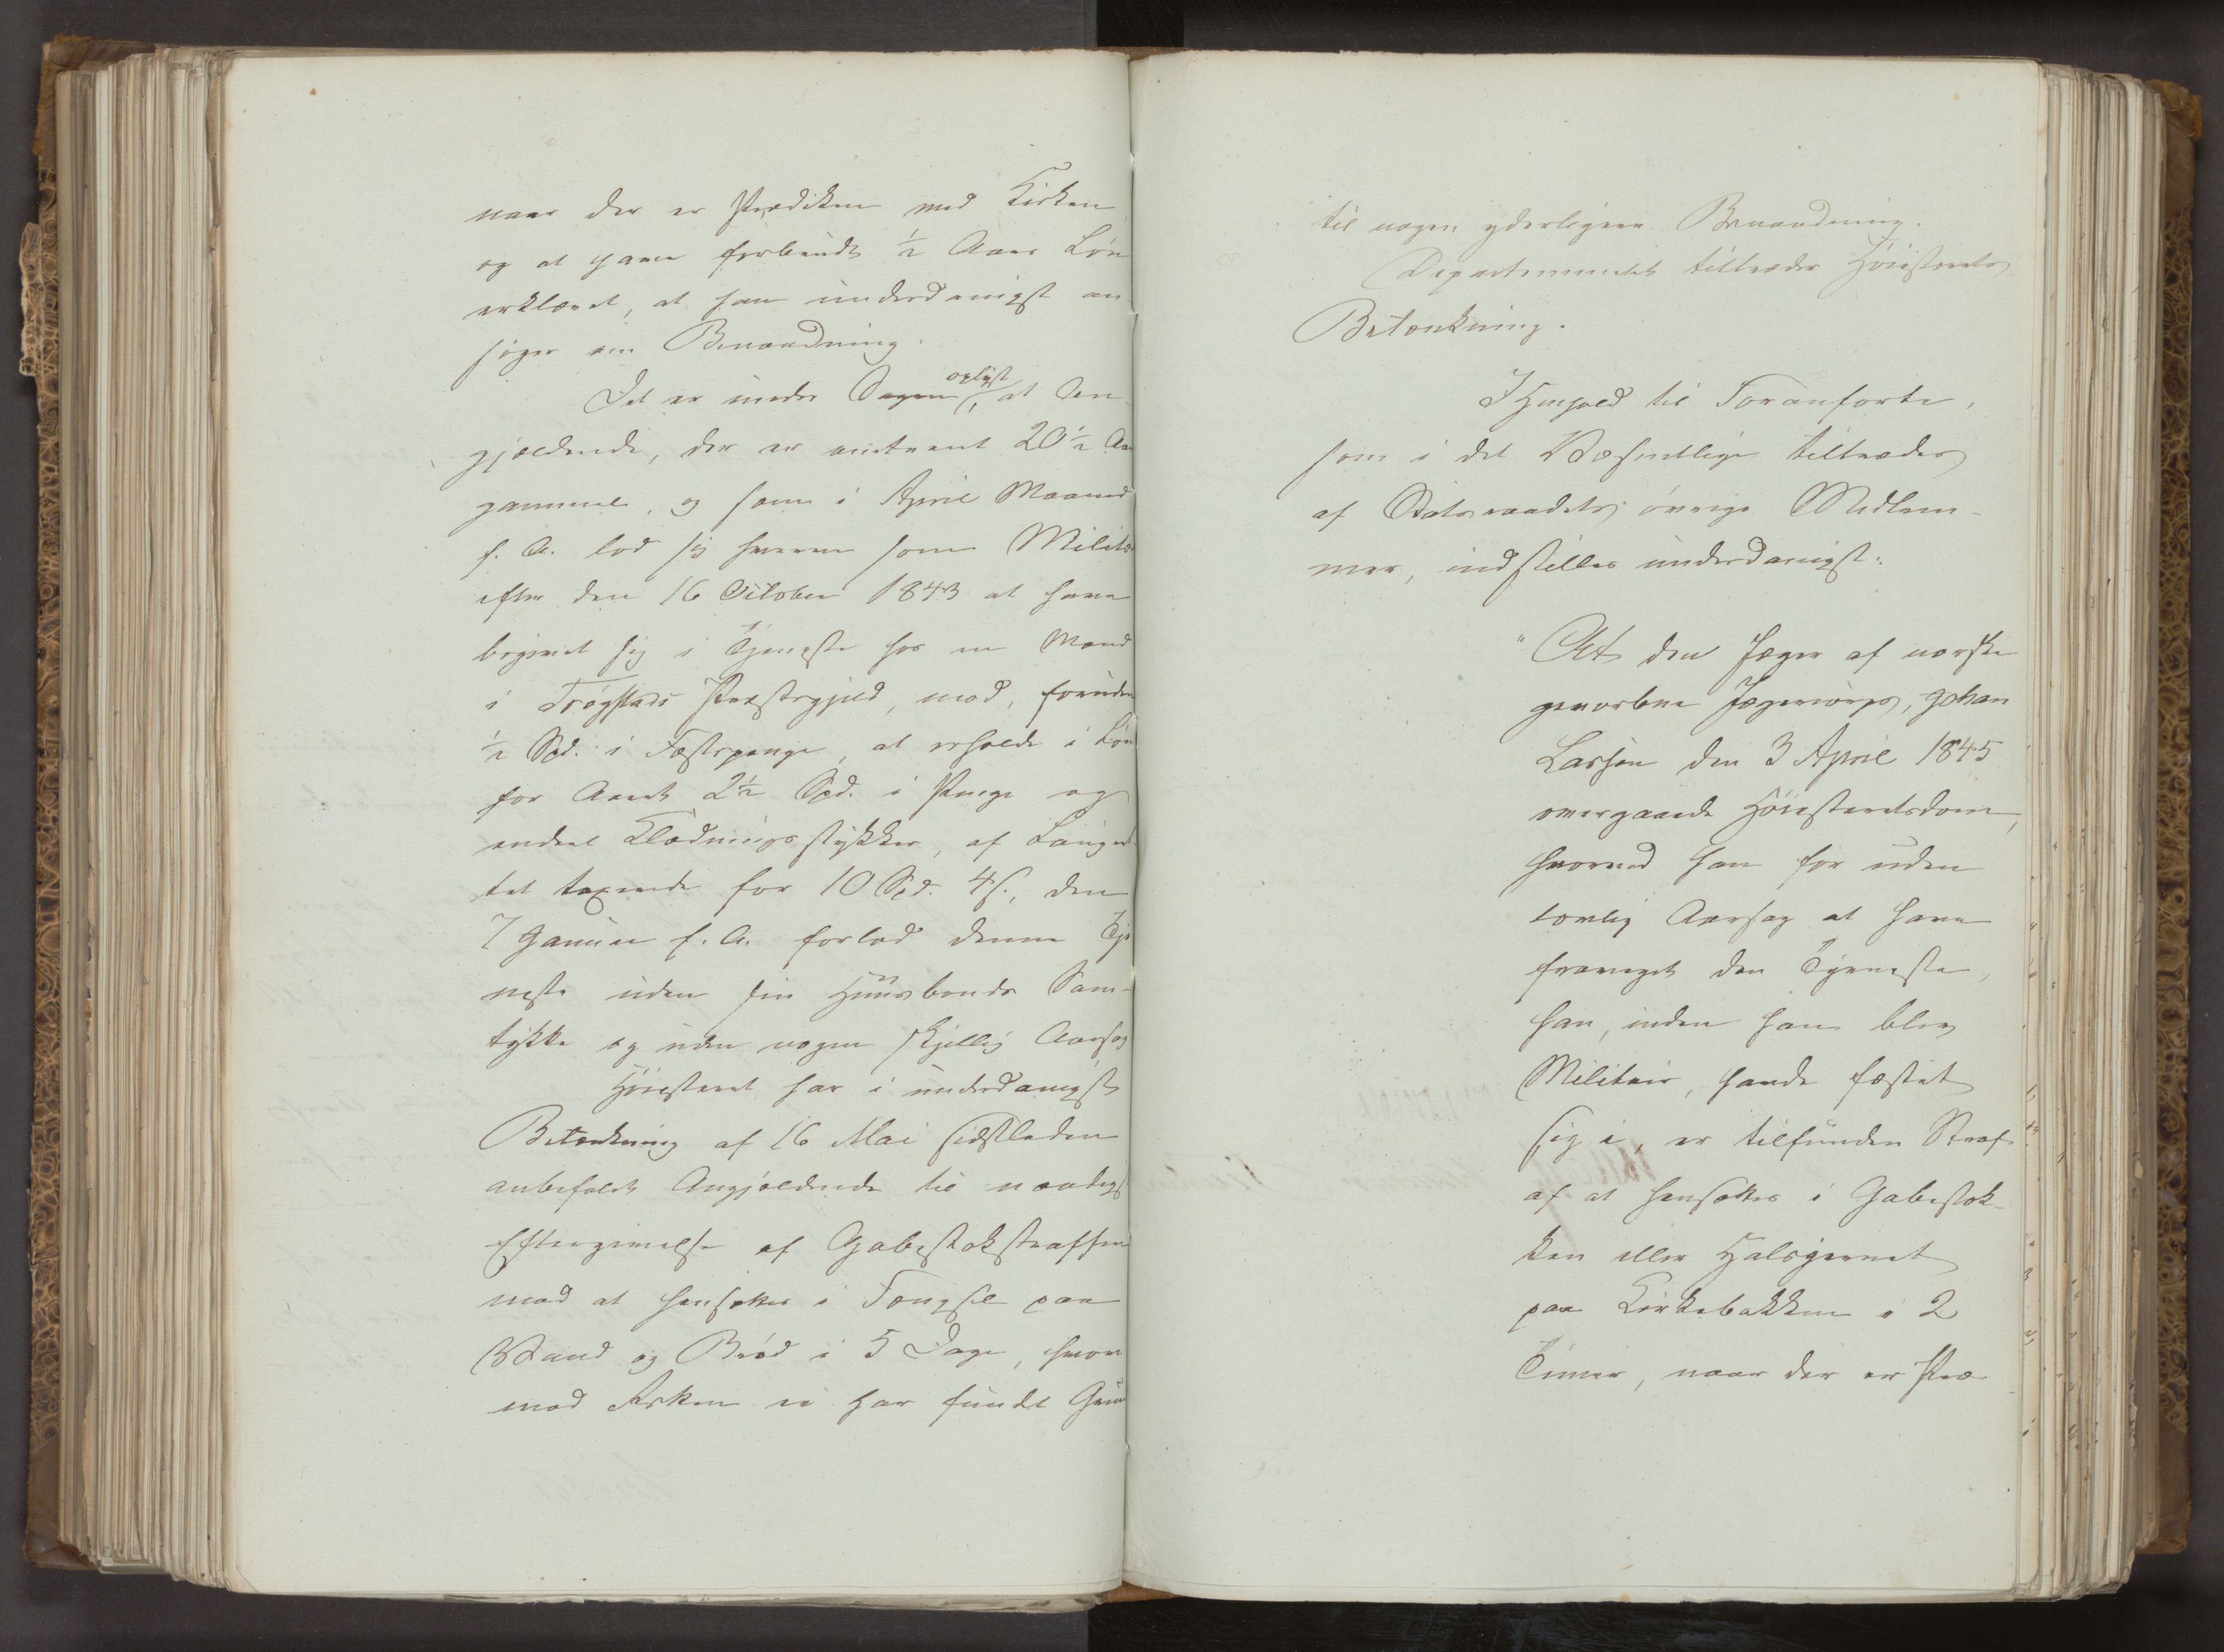 naar der er Prædiken med Kirken
og at have forbrudt ½ Aars Løn
erklæret, at han underdanigst an
søger om Benaadning.
Det er under Sagen oplyst, at An
gjældende, der er omtrent 20½ Aar
gammel, og som i April Maaned
f. A. lod sig hverve som Militær
efter den 16 October 1843 at have
begivet sig i Tjeneste hos en Mand
i Trøgstads Præstegjeld, mod, foruden
½ Spd. i Fæstepenge, at erholde i Løn
for Aaret 2½ Spd. i Penge og
endeel Klædningsstykker, af Laugret
tet taxerede for 10 Spd. 4 s., den
7 Januar f. A. forlod denne Tje
neste uden sin Huusbonds Sam-
tykke og uden nogen skjellig Aarsag
Høiesteret har i underdanigst
Betænkning af 16 Mai sidstleden
anbefalet Angjældende til naadigst
Eftergivelse af Gabestokstraffen
mod at hensættes i Fængsel paa
Vand og Brød i 5 Dage, hvori
mod Retten ei har fundet Grund
til nogen yderligere Benaadning.
Departementet tiltræder Høiesterets
Betænkning.
I Henhold til Foranførte,
som i det Væsentlige tiltrædes
af Statsraadets øvrige Medlem-
mer, indstilles underdanigst:
"At den Jæger af norske
gevorbne Jægercorps, Johan
Larsen den 3 April 1845
overgaaede Høiesteretsdom,
hvorved han for uden
lovlig Aarsag at have
fraveget den Tjeneste,
han, inden han blev
Militair, havde fæstet
sig i, er tilfunden Straf
af at hensættes i Gabestok-
ken eller Halsjernet
paa Kirkebakken i 2
Timer, naar der er Præ